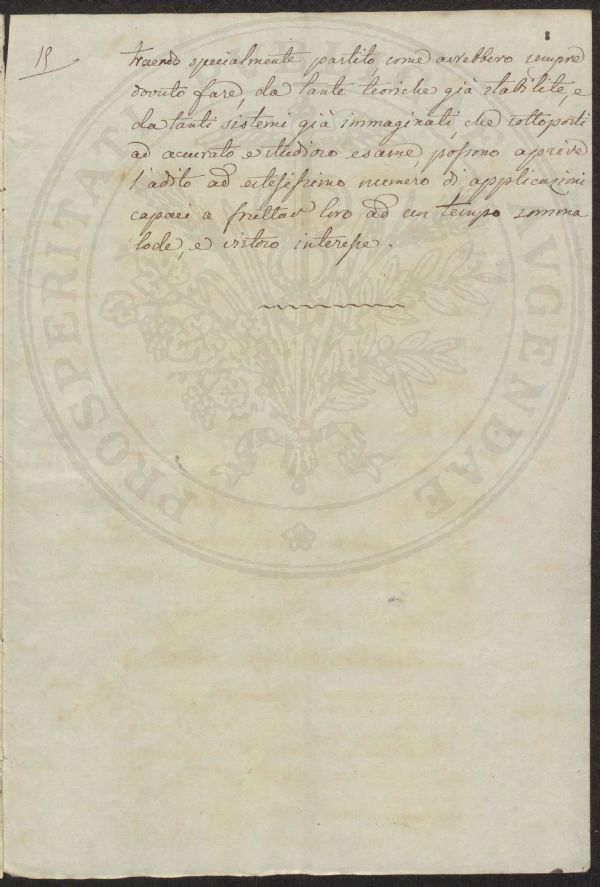 8
15
traendo specialmente partito, come avrebbero sempre
dovuto fare, da tante teoriche già stabilite, e
da tanti sistemi già immaginati, che sottoposti
ad accurato e studioso esame, possono aprire
l'adito ad estesissimo numero di applicazioni
capaci a fruttar loro ad un tempo somma
lode, e vistoso interesse.
PROSPERITATI AUGENDAE